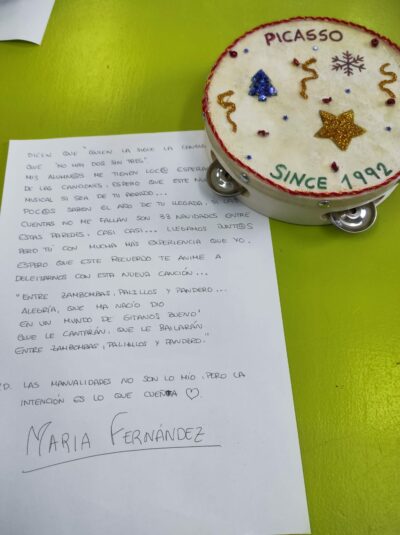 PICASSO
SINCE 1992
DICEN QUE "QUIEN LA SIGUE LA
QUE "NO HAY DOS SIN TRES".
MIS ALUMN@S ME TIENEN LOC@
DE LAS CANCIONES, ESPERO QUE ESTE
MUSICAL SI SEA DE TU AGRADO...
POC@S SABEN EL AÑO DE TU LLEGADA, SI
CUENTAS NO ME FALLAN SON 33 NAVIDADES ENTRE
ESTAS PAREDES, CASI CASI... LLEGAMOS JUNT@S
PERO TÚ CON MUCHA MÁS EXPERIENCIA QUE YO.
ESPERO QUE ESTE RECUERDO TE ANIME A
DELEITARNOS CON ESTA NUEVA CANCIÓN...
"ENTRE ZAMBOMBAS, PALILLOS Y PANDERO...
ALEGRÍA, QUE HA NACÍO DIO
EN UN MUNDO DE GITANOS BUENO"
QUE LE CANTARÁN, QUE LE BAILARÁN
ENTRE ZAMBOMBAS, PALILLOS Y PANDERO."
D. LAS MANUALIDADES NO SON LO MÍO, PERO LA
INTENCIÓN ES LO QUE CUENTA ♡.
MARIA FERNÁNDEZ